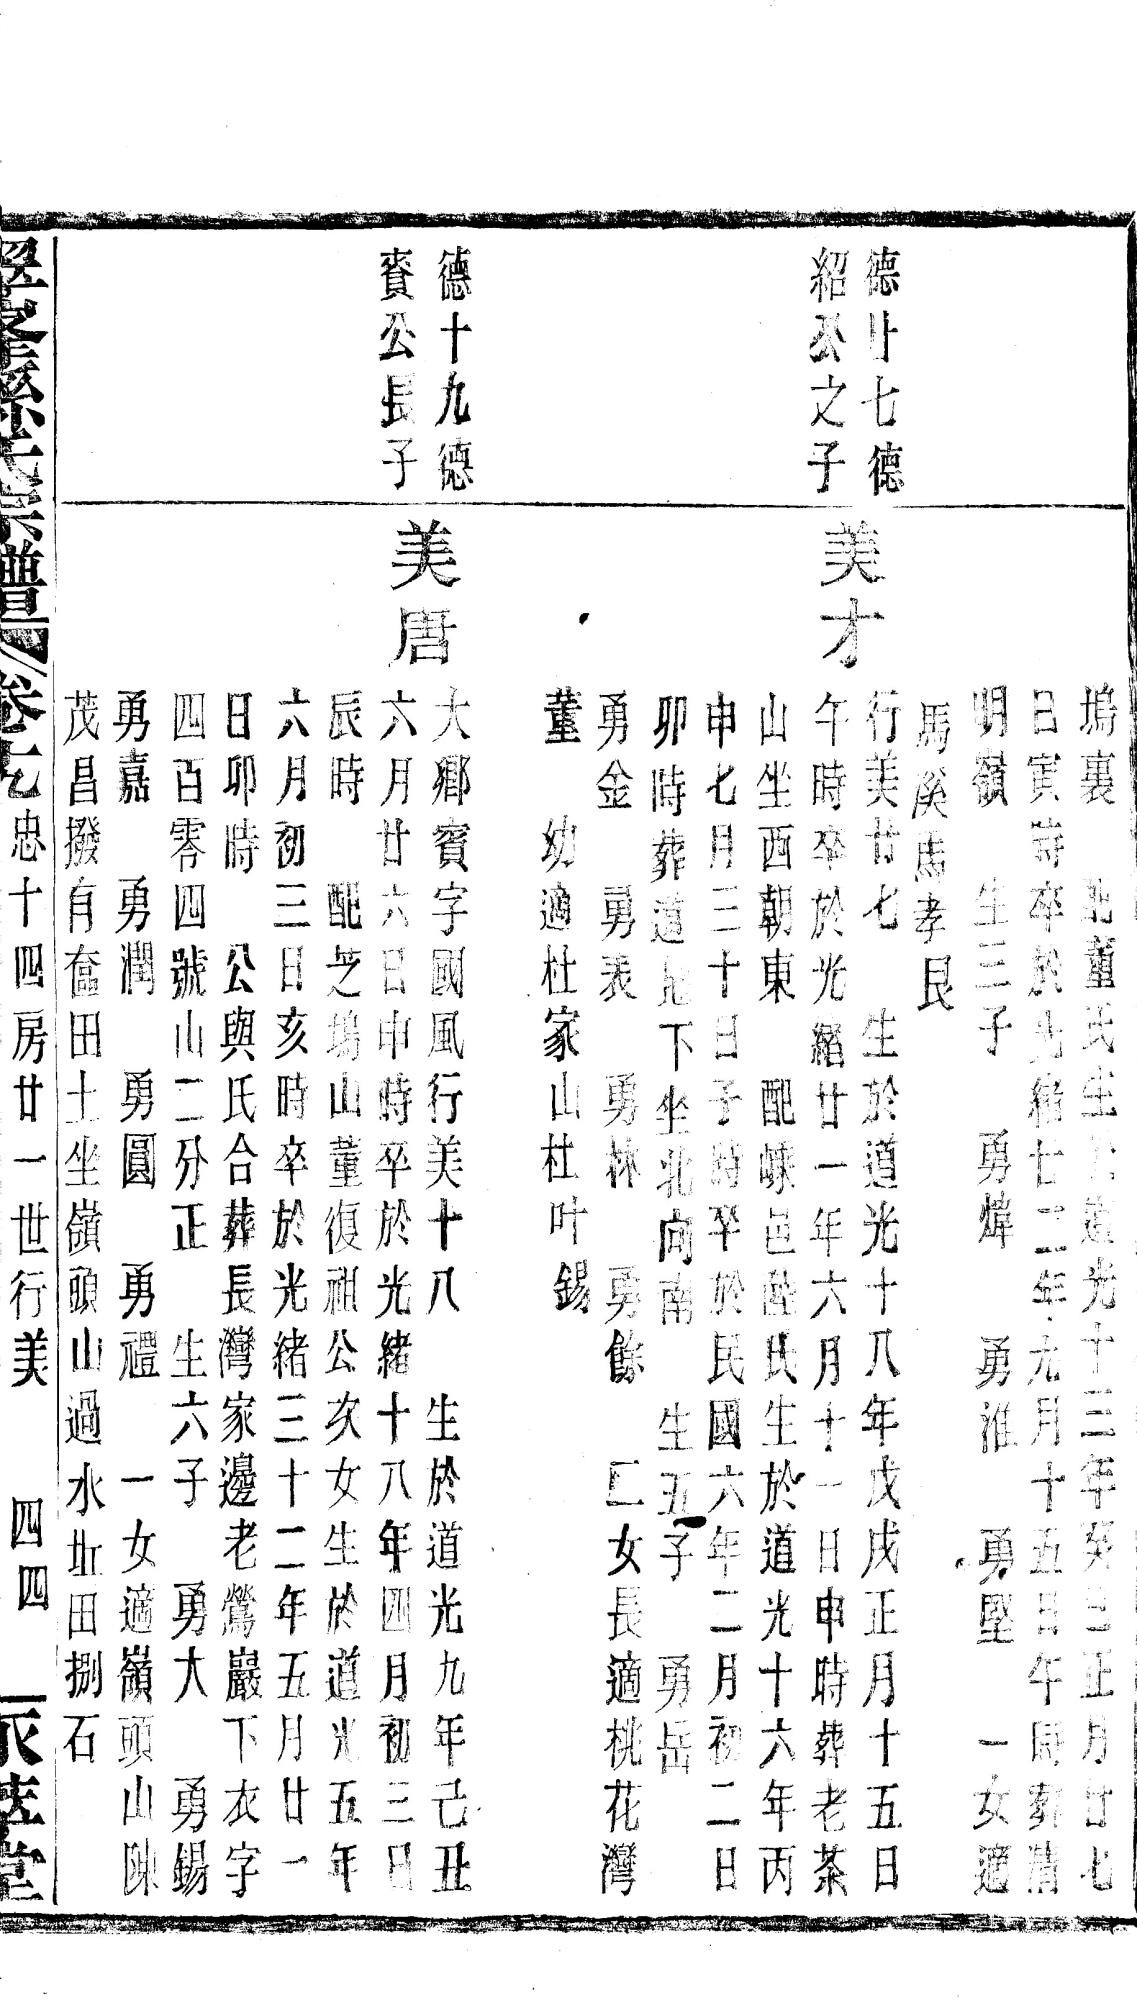 塢裏 北董氏生於道光十三年癸巳正月廿七
日寅時卒於光緒廿二年九月十五日午時葬清
明嶺 生三子 勇煒 勇淮 勇堅 一女適
馬溪馬孝艮
德廿七德
紹公之子
美才
行美廿七 生於道光十八年戊戌正月十五日
午時卒於光緒廿一年六月十一日申時葬老茶
山坐西朝東 配嵊邑陸氏生於道光十六年丙
申七月三十日子時卒於民國六年二月初二日
卯時葬道地下坐北向南 生五子 勇岳
勇金 勇表 勇林 勇餘 二女長適桃花灣
董 幼適杜家山杜叶錫
德十九德
賚公長子
美唐
大鄉賓字國風行美十八 生於道光九年己丑
六月廿六日申時卒於光緒十八年四月初三日
辰時 配芝塢山董復祖公次女生於道光五年
六月初三日亥時卒於光緒三十二年五月廿一
日卯時 公與氏合葬長灣家邊老鶯巖下衣字
四百零四號山二分正 生六子 勇大 勇錫
勇嘉 勇潤 勇圓 勇禮 一女適嶺頭山陳
茂昌撥有奩田土坐嶺頭山過水坵田捌石
孫氏宗譜 卷七 忠十四房廿一世行美 四四 堂